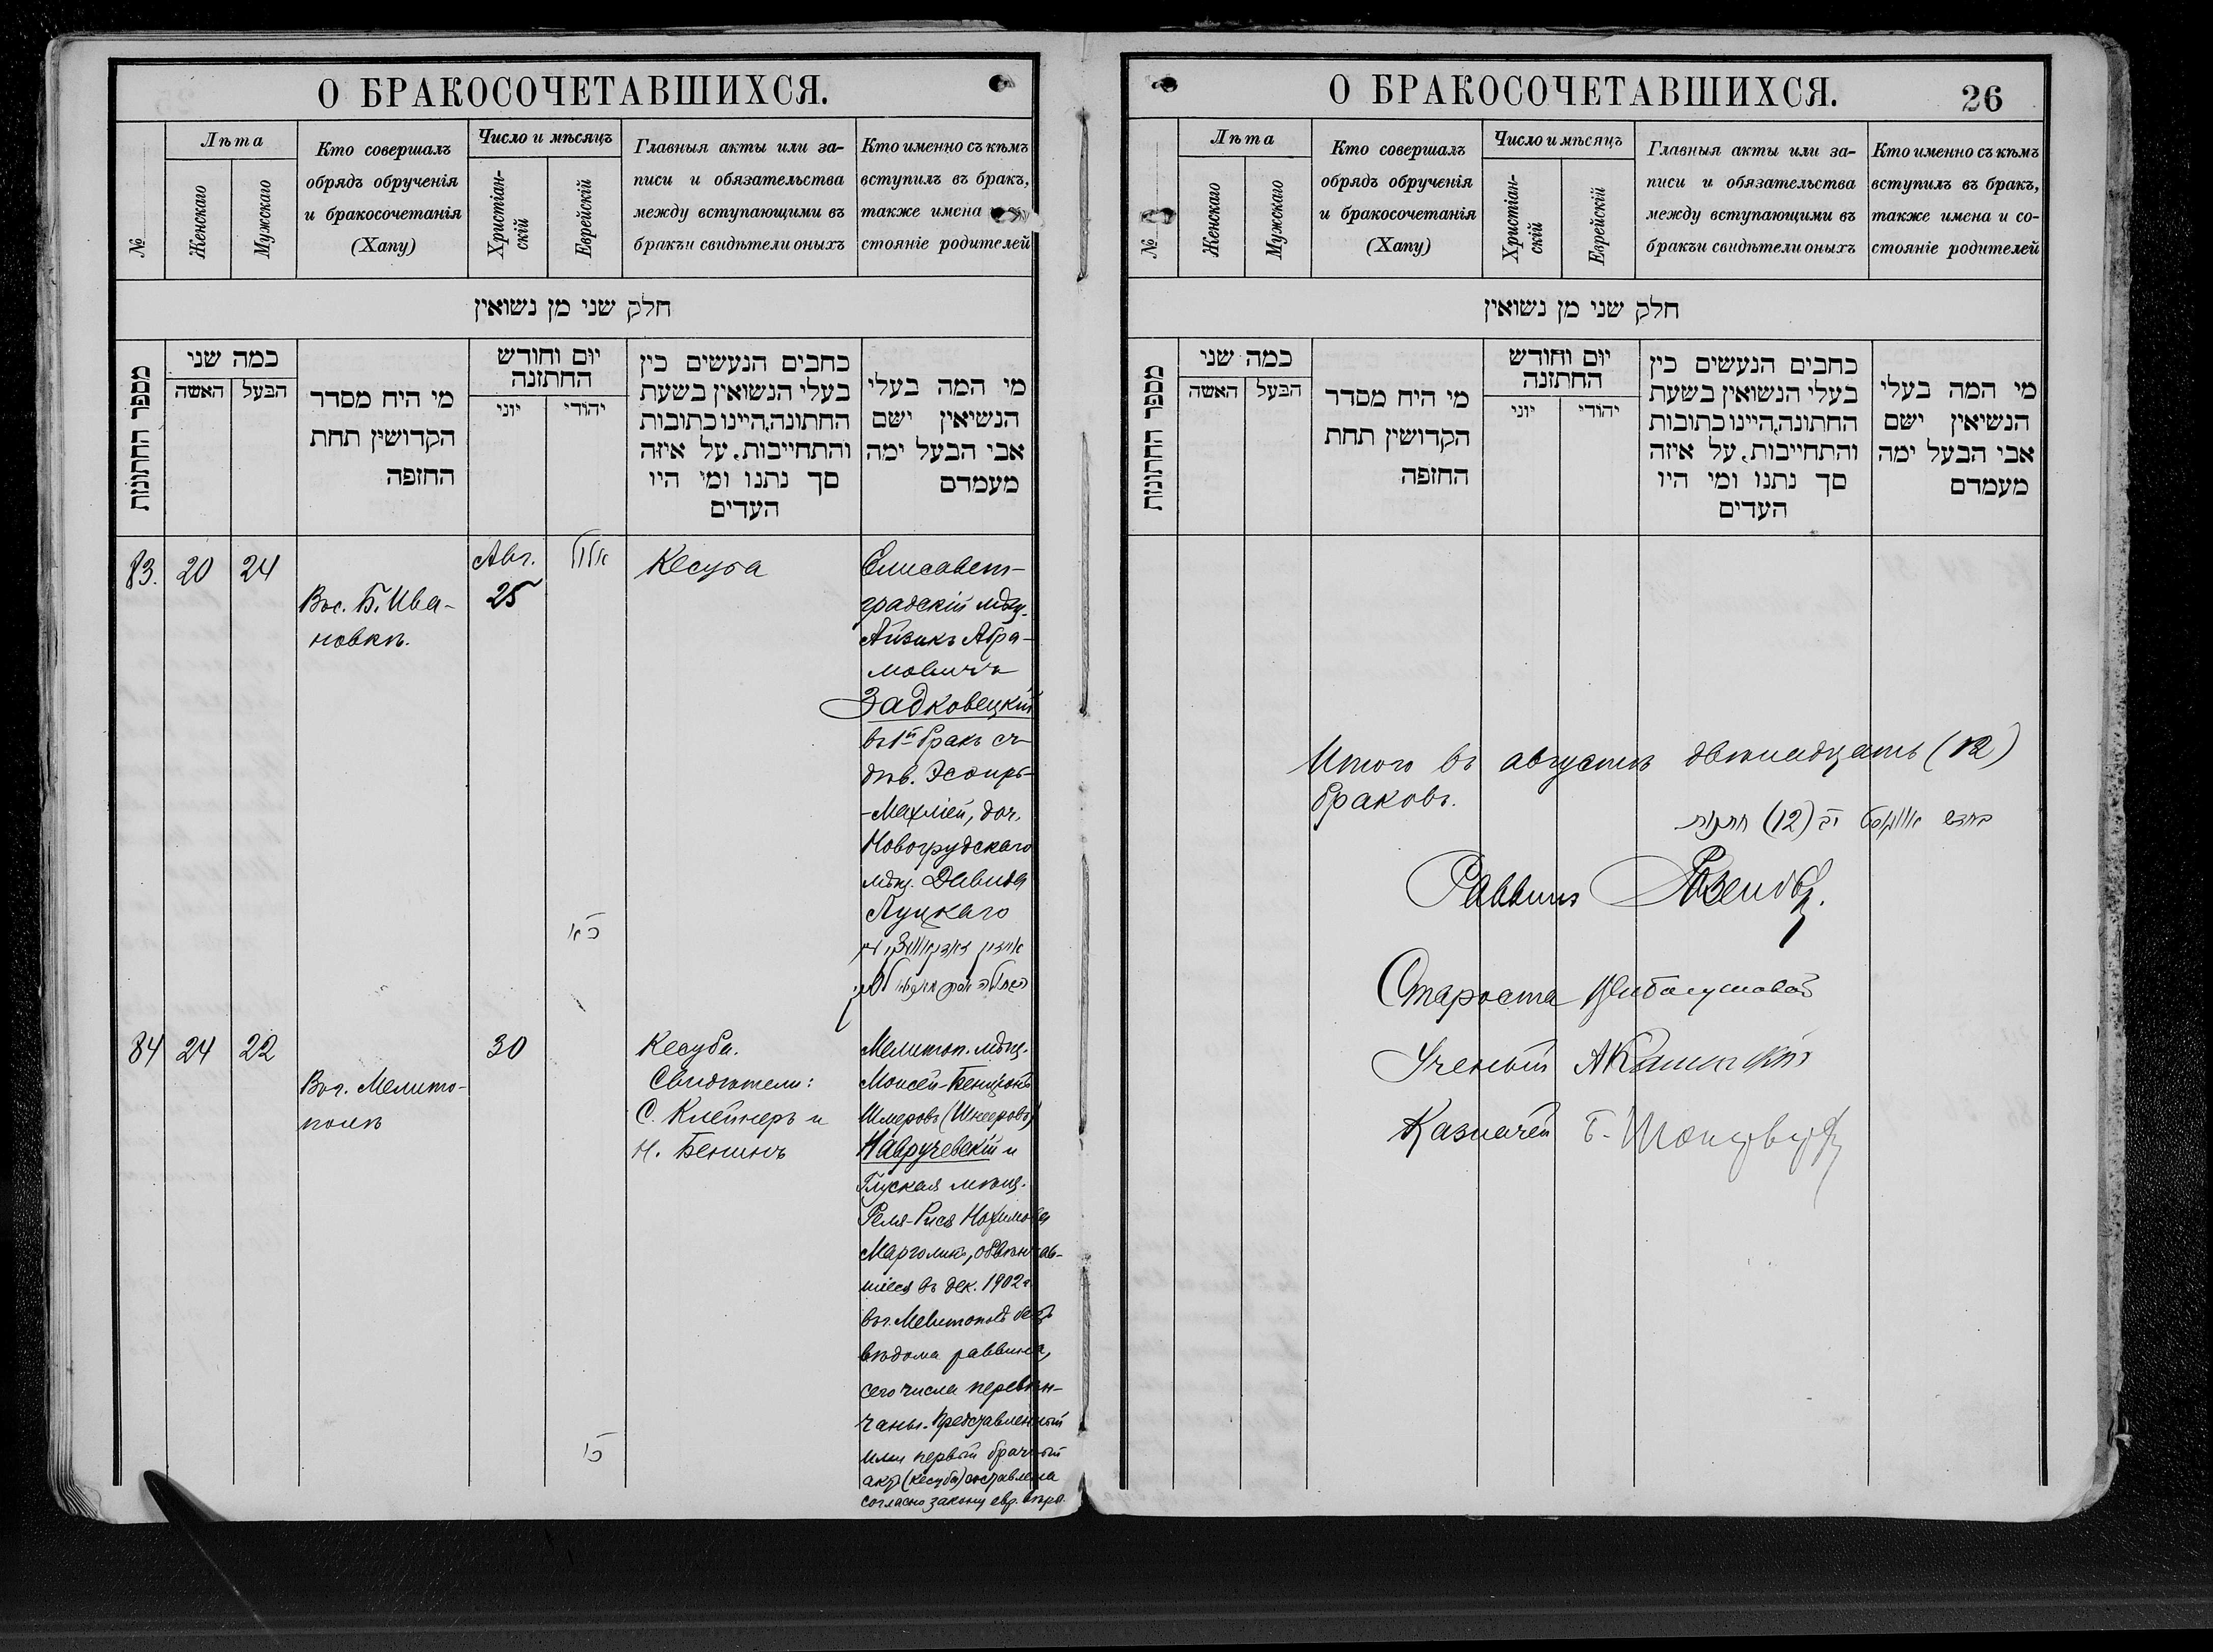 О БРАКОСОЧЕТАВШИХСЯ.
№
Лѣта
Женскаго
Мужскаго
Кто совершалъ
обрядъ обрученія
и бракосочетанія
(Хапу)
Число и мѣсяцъ
Христіан-
скій
Еврейскій
Главныя акты или за-
писи и обязательства
между вступающими въ
бракъ и свидѣтели оныхъ
Кто именно съ кѣмъ
вступилъ въ бракъ,
также имена
стояніе родителей
חלק שני מן נשואין
מספר החתונות
כמה שני
האשה
הבעל
מי היח מסדר
הקדושין תחת
החופה
יום וחודש
החתונה
יוני
יהודי
כחבים הנעשים כין
בעלי הנשואין בשעת
החתונה, היינו כתובות
והתחייבות. על איזה
סך נתנו ומי היו
העדים
מי המה בעלי
הנשיאין ישם
אבי הבעל ימה
מעמדם
83. 20 24
Вос. Б. Ива-
новкѣ.
Авг.
25
אלול
כ״א
Кесуба
Елисавет-
градскій мѣщ.
Айзикъ Абра-
мовичъ
Задковецкій
въ 1й бракъ съ
дѣв. Эсѳирь-
-Махліей, доч.
Новогрудскаго
мѣщ. Давида
Луцкаго
84 24 22
Въ г. Мелито-
полѣ
30
Кесуба.
Свидѣтели:
С. Клейнеръ и
Н. Бенинъ
Мелитоп. мѣщ.
Моисей-Бенціонъ
Шмеровъ (Шнееровъ)
Навручевскій и
Глуская мѣщ.
Реля-Рися Нохимова
Марголинъ, обвѣнчав-
шіеся въ дек. 1902 г.
въ г. Мелитополѣ безъ
вѣдома раввина,
сего числа перевѣн-
чаны. Представленный
ими первый брачный
актъ (кесуба) составлена
согласно закону евр. вѣро.
О БРАКОСОЧЕТАВШИХСЯ.
26
№
Лѣта
Женскаго
Мужскаго
Кто совершалъ
обрядъ обрученія
и бракосочетанія
(Хапу)
Число и мѣсяцъ
Христіан-
скій
Еврейскій
Главныя акты или за-
писи и обязательства
между вступающими въ
бракъ и свидѣтели оныхъ
Кто именно съ кѣмъ
вступилъ въ бракъ,
также имена и со-
стояніе родителей
חלק שני מן נשואין
מספר החתונות
כמה שני
האשה
הבעל
מי היח מסדר
הקדושין תחת
החופה
יום וחודש
החתונה
יוני
יהודי
כחבים הנעשים כין
בעלי הנשואין בשעת
החתונה, היינו כתובות
והתחייבות, על איזה
סך נתנו ומי היו
העדים
מי המה בעלי
הנשיאין ישם
אבי הבעל ימה
מעמדם
Итого въ августѣ двѣнадцать (12)
браковъ.
בחדש אווגוסט יב (12) חתונות
Раввинъ
Староста
Ученый
Казначей Б.